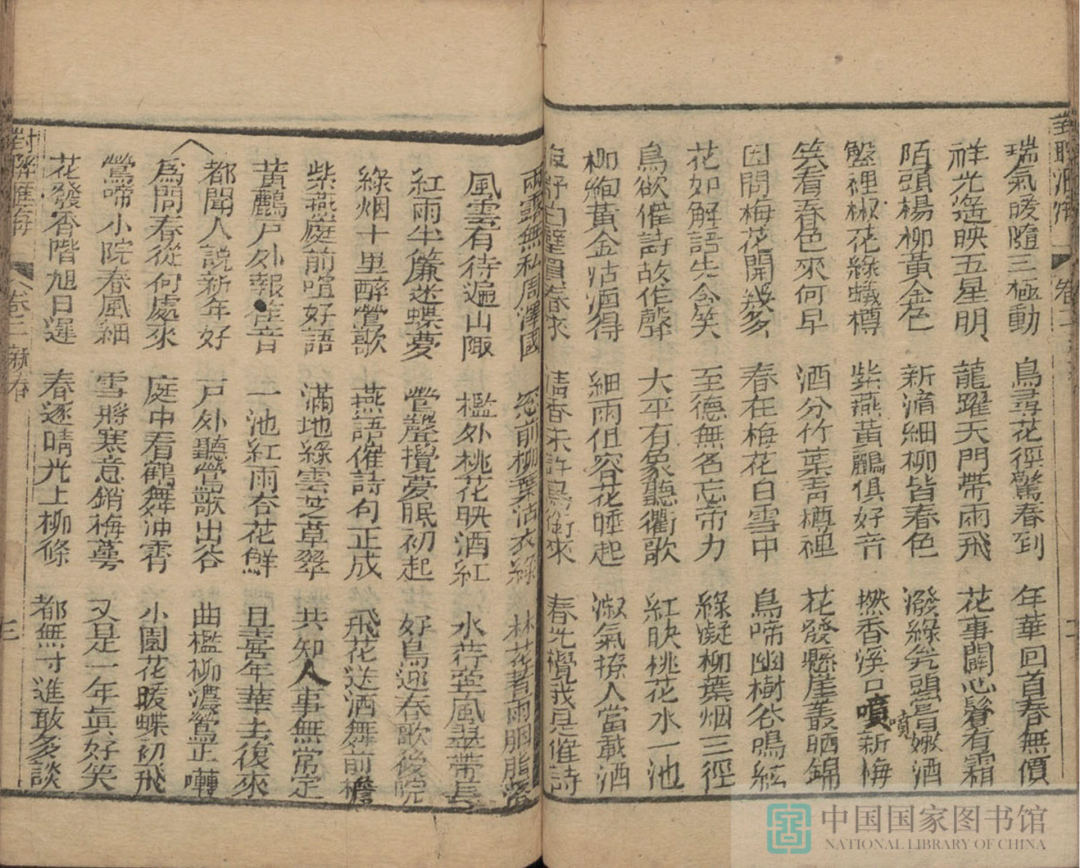 瑞氣暖隨三極動 鳥尋花徑驚春到 年華回首春無價
祥光遙映五星明 龍躍天門帶雨飛 花事關心鬢有霜
陌頭楊柳黃金色 新淯細柳皆春色 潑綠甕頭嘗嫩酒
盤裡椒花綠蟻樽 柴燕黃鸝俱好音 撚香溪口噴新梅
笑看春色來何早 酒分竹葉靑樽裡 花發懸崖叢晒錦
因問梅花開幾多 春在梅花白雪中 鳥啼幽樹谷鳴紅
花如解語先含笑 至德無名忘帝力 綠凝柳葉烟三徑
鳥欲催詩故作聲 大平有象聽衢歌 紅映桃花水一池
柳絢黃金沽酒得 細雨但容花睡起 淑氣撩人當載酒
春光攪我是催詩
雨露無私周澤國 窓前柳葉沾衣綠 林花著雨胭脂
風雲有待遍山陬 檻外桃花映酒紅 水荇牽風翠帶長
紅雨半簾迷蝶夢 鶯聲攪夢眠初起 好鳥迎春歌後院
綠烟十里醉鶯歌 燕語催詩句正成 飛花送酒舞前檐
柴燕庭前喧好語 滿地綠雲芝草翠 共知人事無常定
黃鸝戶外報佳音 一池紅雨杏花鮮 且喜年華去復來
都聞人説新年好 戶外聽鶯歌出谷 曲檻柳濃鶯正囀
爲問春從何處來 庭中看鶴舞冲霄 小園花暖蝶初飛
鶯啼小院春風細 雪將寒意銷梅萼 又是一年眞好笑
花發香階旭日遲 春逐晴光上柳條 都無寸進敢多談
對聯滙海 卷二 新春 三
中国国家图书馆
NATIONAL LIBRARY OF CHINA